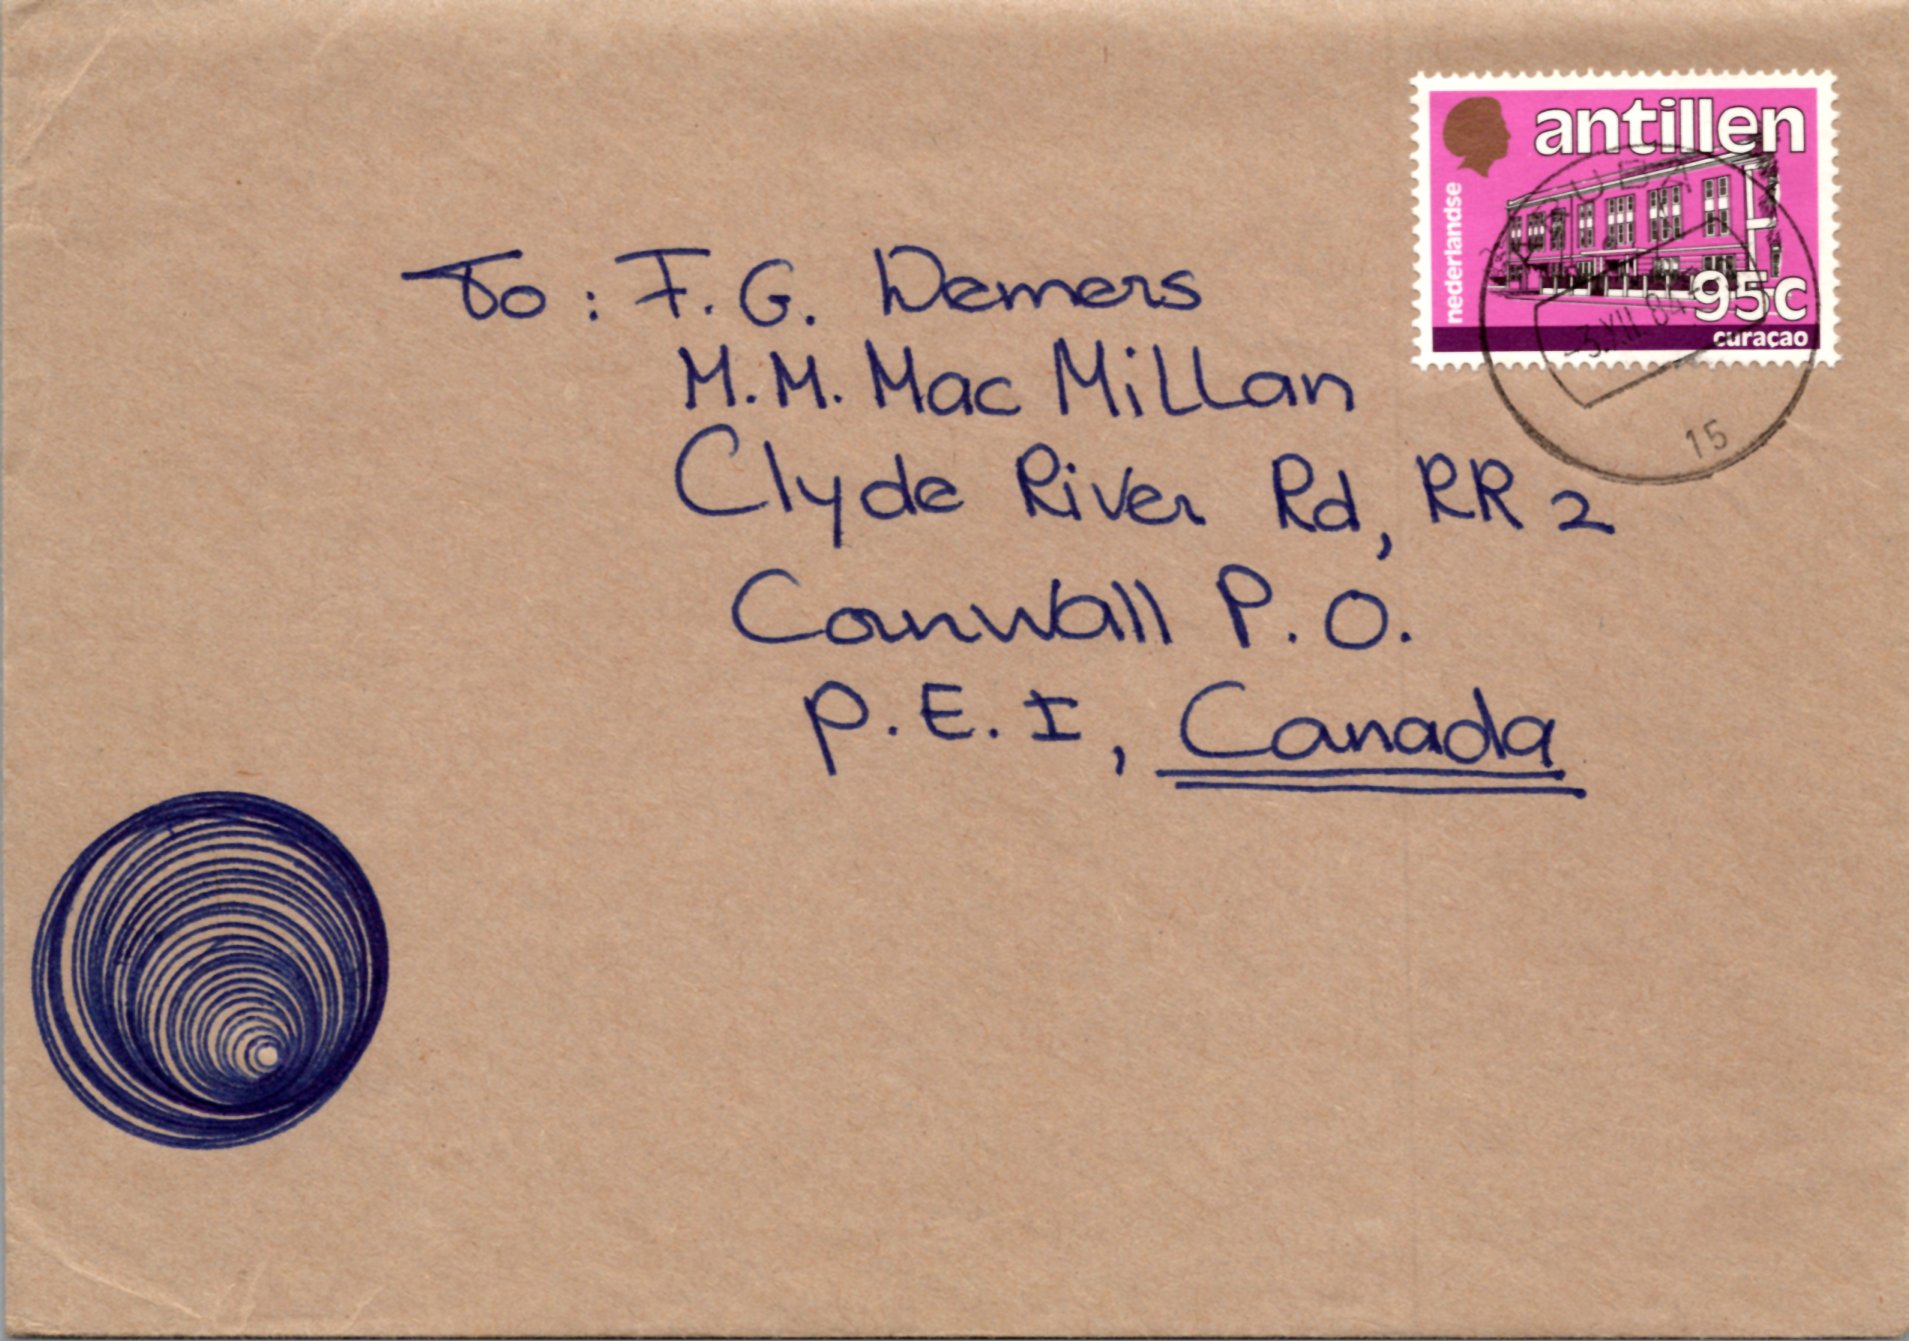 antillen
nederlandse
95c
curaçao
ARUBA
-3.XII.84
15
To: F. G. Demers
M. M. Mac Millan
Clyde River Rd, RR 2
Cornwall P. O.
P. E. I, Canada